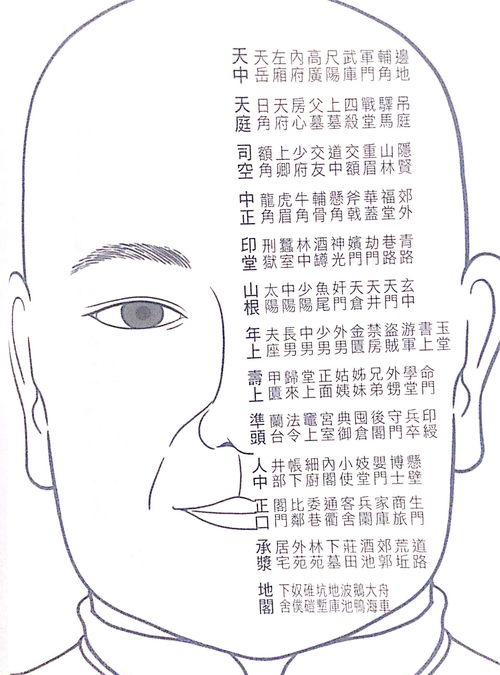 天中 天岳 左廂 內府 高廣 尺陽 武庫 軍門 輔角 邊地
天庭 日角 天府 房心 父墓 上墓 四殺 戰堂 驛馬 吊庭
司空 額角 上卿 少府 交友 道中 交額 重眉 山林 隱賢
中正 龍角 虎眉 牛角 輔骨 懸角 斧戟 華蓋 福堂 郊外
印堂 刑獄 蠶室 林中 酒罇 神光 嬪門 劫門 巷路 青路
山根 太陽 中陽 少陽 魚尾 奸門 天倉 天井 天門 玄中
年上 夫座 長男 中男 少男 外男 金匱 禁房 盜賊 游軍 書上 玉堂
壽上 甲匱 歸來 堂上 正面 姑姨 姊妹 兄弟 外甥 學堂 命門
準頭 蘭台 法令 竈上 宮室 典御 囤倉 後閣 守門 兵卒 印綬
人中 井部 帳下 細廚 內閣 小使 妓堂 嬰門 博士 懸壁
正口 閣門 比鄰 委巷 通衢 客舍 兵蘭 家庫 商旅 生門
承漿 居宅 外苑 林苑 下墓 莊田 酒池 郊郭 荒坵 道路
地閣 下舍 奴僕 碓磑 坑塹 地庫 波池 鵝鴨 大海 舟車